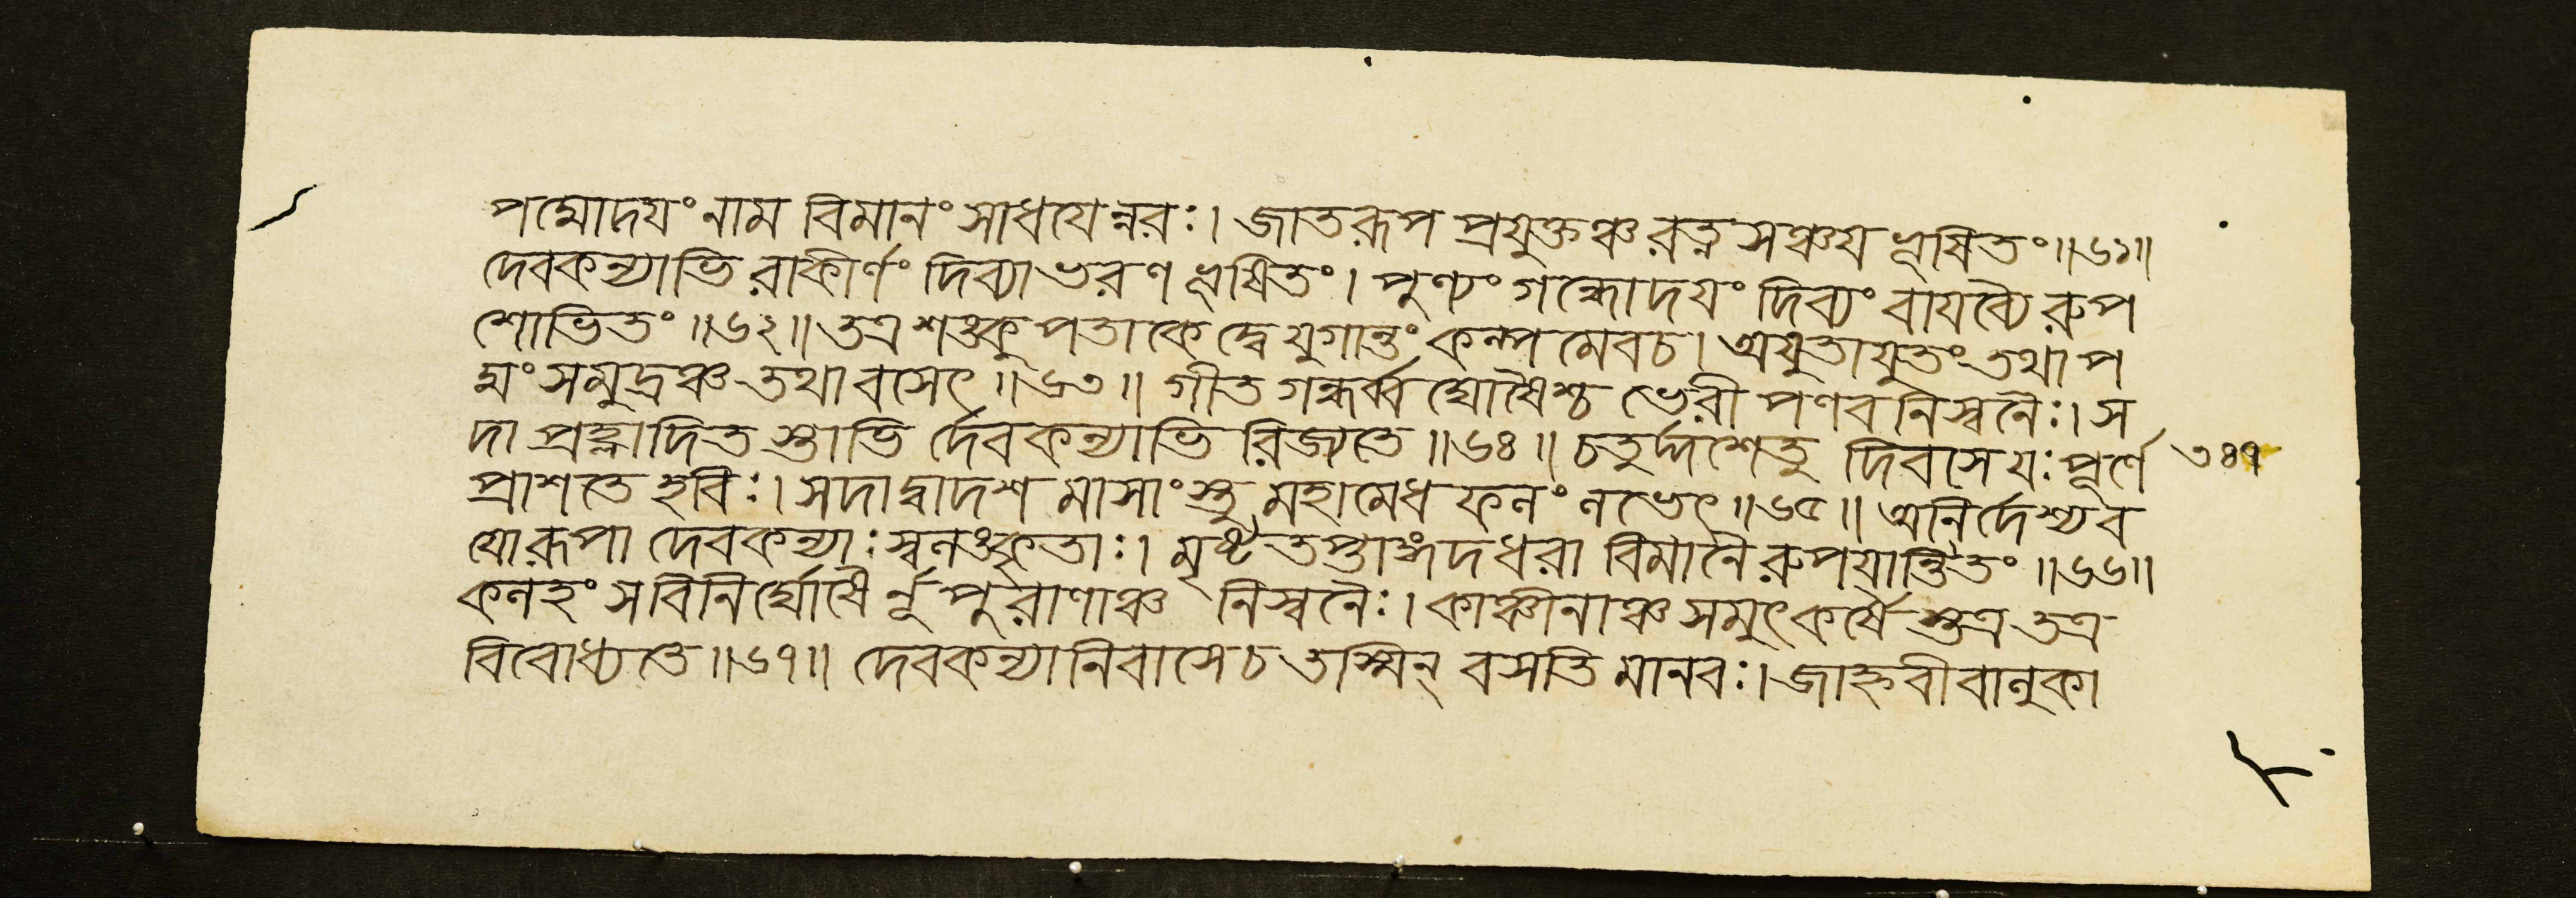 পদ্মোদয়ং নাম বিমানং সাধয়েন্নরঃ। জাতরূপ প্রযুক্তঞ্চ রত্ন সঞ্চয় ভূষিতং॥৬১॥
দেবকন্যাভি রাকীর্ণং দিব্যাভরণ ভূষিতং। পুণ্যং গন্ধোদয়ং দিব্যং বায়ব্যৈ রুপ
শোভিতং॥৬২॥ তত্র শঙ্কু পতাকে দ্বে যুগান্তং কল্প মেবচ। অযুতাযুতং তথা প
দ্মং সমুদ্রঞ্চ তথা বসেৎ॥৬৩॥ গীত গন্ধর্ব্ব ঘোষৈশ্চ ভেরী পণব নিস্বনৈঃ। স
দা প্রহ্লাদিত স্তাভি র্দেবকন্যাভি রিজ্যতে॥৬৪॥ চতুর্দ্দশেতু দিবসে যঃ পূর্ণে
প্রাশতে হবিঃ। সদা দ্বাদশ মাসাংস্তু মহামেধ ফলং লভেৎ॥৬৫॥ অনির্দেশ্যব
যোরূপা দেবকন্যাঃ স্বলঙ্কৃতাঃ। মৃষ্টতপ্তাঙ্গদধরা বিমানৈ রুপযান্তিতং॥৬৬॥
কলহং সবিনির্ঘোষৈ র্নূপুরাণাঞ্চ নিস্বনৈঃ। কাঞ্চীনাঞ্চ সমুৎকর্ষৈ স্তত্র তত্র
বিবোধ্যতে॥৬৭॥ দেবকন্যানিবাসেচ তস্মিন্ বসতি মানবঃ। জাহ্নবীবালুকা
৩৪৭